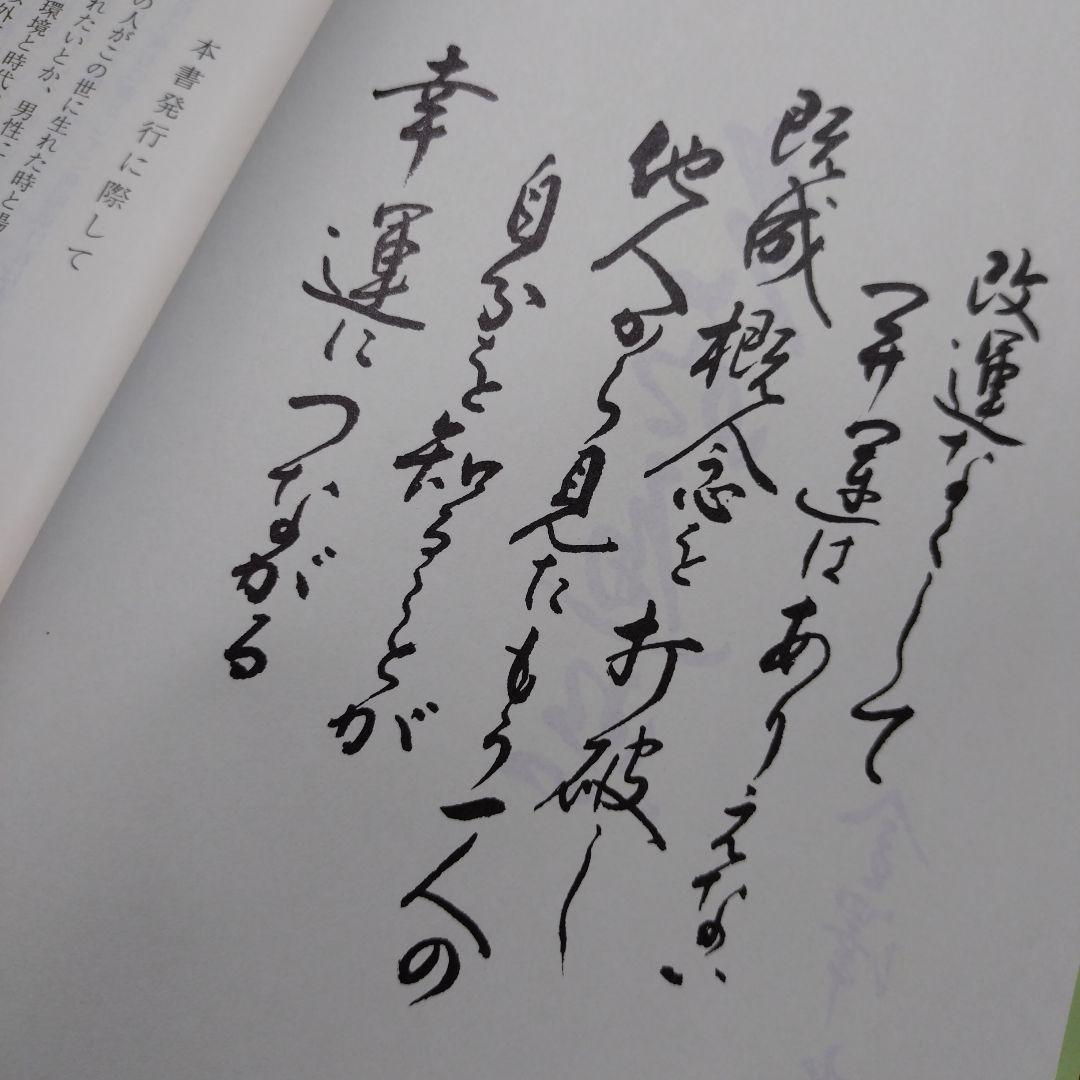 改運なくして
開運はありえない
既成概念を打破し
他人から見たもう一人の
自分を知ることが
幸運につながる
本書発行に際して
の人がこの世に生れた時と場
れたいとか、男性に
環境と時代